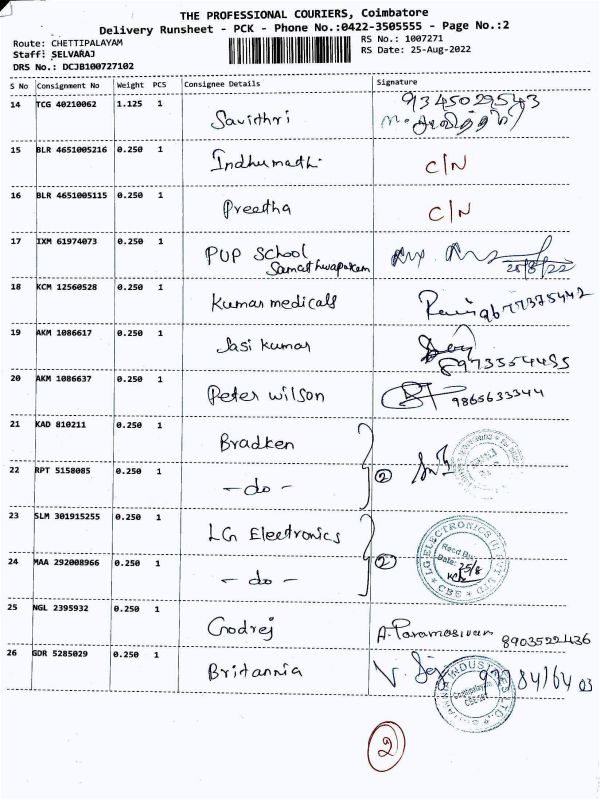 THE PROFESSIONAL COURIERS, Coimbatore
Delivery Runsheet - PCK - Phone No.:0422-3505555 - Page No.:2
Route: CHETTIPALAYAM RS No.: 1007271
Staff: SELVARAJ RS Date: 25-Aug-2022
DRS No.: DCJB100727102
S No Consignment No Weight PCS Consignee Details Signature
14 TCG 40210062 1.125 1 Savithri 9345029543
15 BLR 4651005216 0.250 1 Indhumathi C/N
16 BLR 4651005115 0.250 1 Preetha C/N
17 IXM 61974073 0.250 1 PUP School
Samathuvapuram 25/8/22
18 KCM 12560528 0.250 1 Kumar medicals 9677375442
19 AKM 1086617 0.250 1 Sasi kumar
8973554455
20 AKM 1086637 0.250 1 Peter wilson 9865633344
21 KAD 810211 0.250 1 Bradken
22 RPT 5158085 0.250 1 - do - 2
23 SLM 301915255 0.250 1 LG Electronics
LG ELECTRONICS (I) PVT LTD
Recd By:
Date: 25/8
CBE
24 MAA 292008966 0.250 1 - do - 2
25 NGL 2395932 0.250 1 Godrej A. Paramasivan 8903522436
26 GDR 5285029 0.250 1 Britannia
2